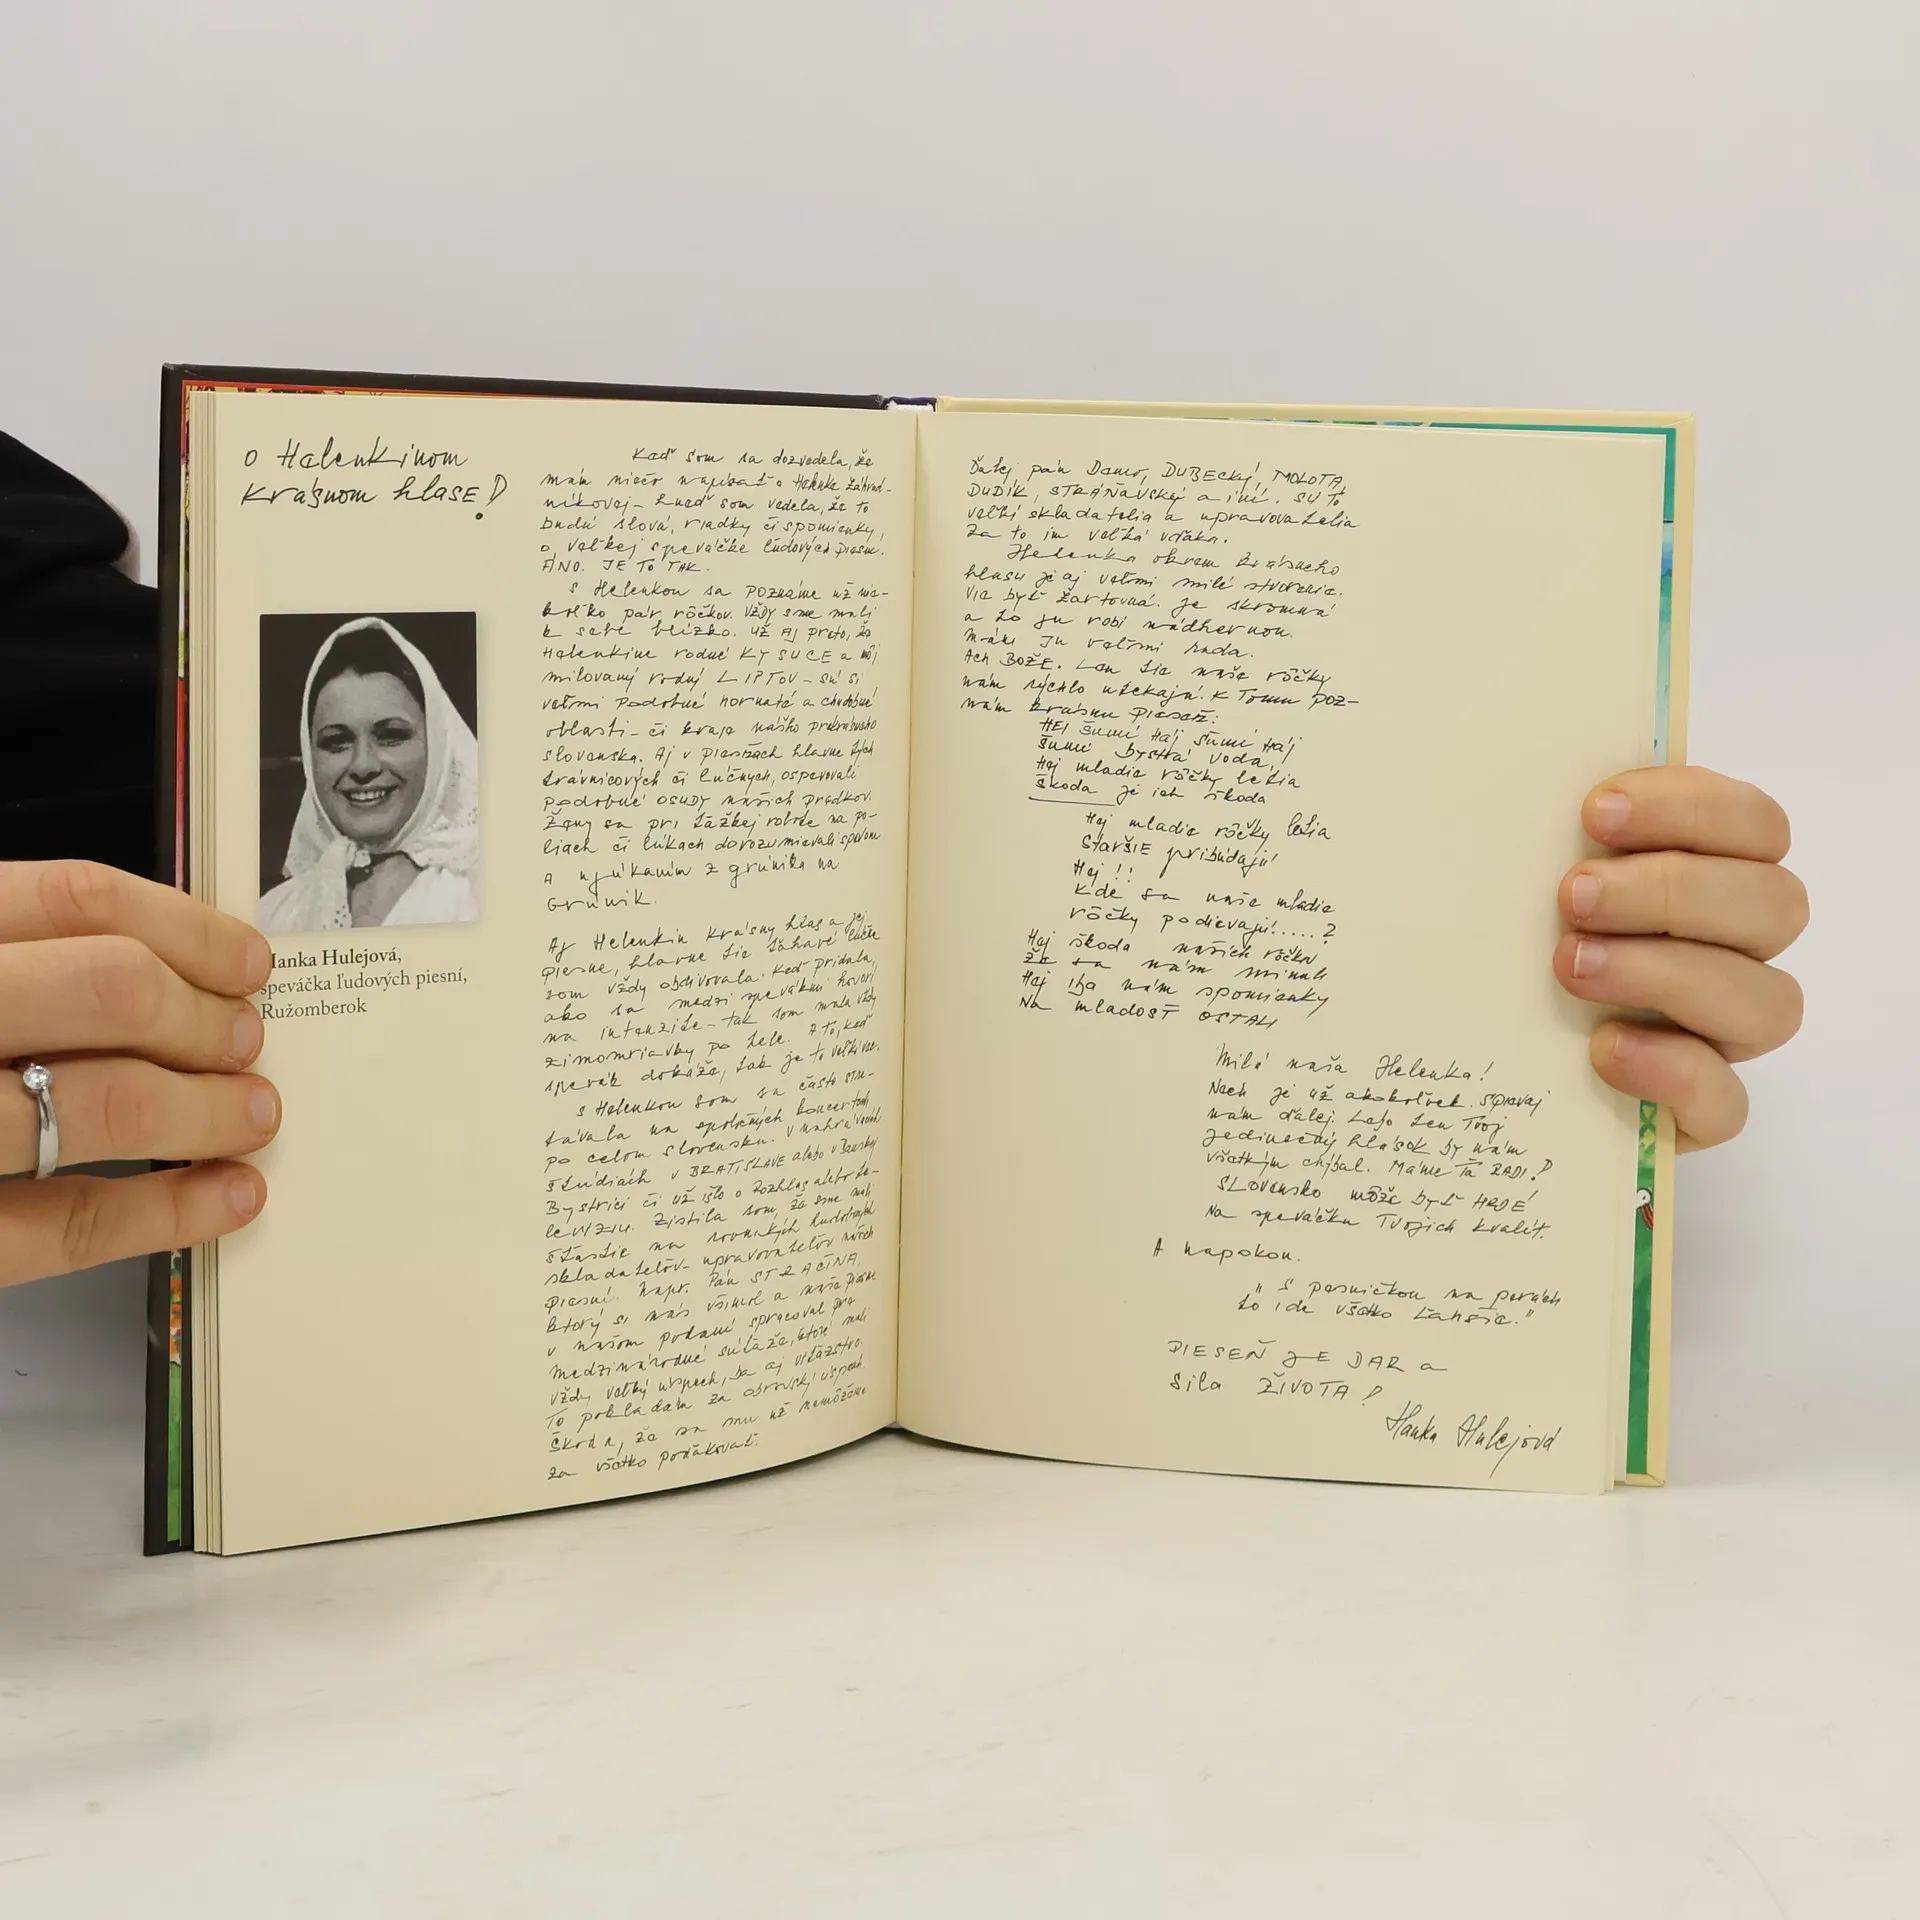 o Halenkinom
krásnom hlase!
Hanka Hulejová,
speváčka ľudových piesní,
Ružomberok
Keď som sa dozvedela, že
mám niečo napísať o Helenke Záhrad-
níkovej - hneď som vedela, že to
budú slová, riadky či spomienky,
o veľkej speváčke ľudových piesní.
ÁNO. JE TO TAK.
S Helenkou sa poznáme už nie-
koľko pár rôčkov. Vždy sme mali
k sebe blízko. Už aj preto, že
Helenkine rodné KYSUCE a môj
milovaný rodný LIPTOV - sú si
veľmi podobné hornaté a chudobné
oblasti - či kraje nášho prekrásneho
slovenska. Aj v piesňach hlavne tých
trávnicových či lúčnych, ospevovali
podobné osudy našich predkov.
Ženy sa pri ťažkej robote na po-
liach či lúkach dorozumievali spevom
A ujúkaním z grúnika na
Grúnik.
Aj Helenkin krásny hlas a jej
piesne, hlavne tie ťahavé lúčne
som vždy obdivovala. Keď pridala,
ako sa medzi spevákmi hovorí
na intenzite - tak som mala vždy
zimomriavky po tele. A to, keď
spevák dokáže, tak je to veľká vec.
S Helenkou som sa často stre-
távala na spoločných koncertoch
po celom slovensku. V nahrávacích
štúdiách v BRATISLAVE alebo v Banskej
Bystrici či už išlo o Rozhlas alebo te-
levíziu. Zistila som, že sme mali
šťastie na rovnakých hudobných
skladateľov - upravovateľov našich
piesní. Napr. Pán STRAČINA,
ktorý si nás všimol a naše piesne
v našom podaní spracoval pre
medzinárodné súťaže, ktoré mali
vždy veľký úspech, ba aj víťazstvo.
To pokladám za obrovský úspech.
Škoda, že sa mu už nemôžeme
za všetko poďakovať.
Ďalej pán Demo, DUBECKÝ, MOLOTA,
DUDÍK, STRÁŇAVSKÝ a iní. SÚ TO
veľkí skladatelia a upravovatelia
Za to im veľká vďaka.
Helenka okrem krásneho
hlasu je aj veľmi milé stvorenie.
Vie byť žartovná. Je skromná
a to ju robí nádhernou.
Mám ju veľmi rada.
Ach BOŽE. Len tie naše rôčky
nám rýchlo utekajú. K tomu poz-
nám krásnu pieseň:
HEJ ŠUMÍ HÁJ ŠUMÍ HÁJ
ŠUMÍ bystrá voda,
Hej mladie rôčky letia
Škoda je ich škoda
Hej mladie rôčky letia
STARŠIE pribúdajú
Hej!!
Kde sa naše mladie
rôčky podievajú.....?
Hej škoda našich rôčkov
že sa nám minuli
Hej iba nám spomienky
Na mladosť OSTALI
Milá naša Helenka!
Nech je už akokoľvek. Spievaj
nám ďalej. Lebo ten Tvoj
jedinečný hlások by nám
všetkým chýbal. Máme Ťa RADI!
SLOVENSKO môže byť HRDÉ
Na speváčku Tvojich kvalít.
A napokon.
"S pesničkou na perách
to ide všetko ľahšie."
PIESEŇ JE DAR a
Sila ŽIVOTA!
Hanka Hulejová